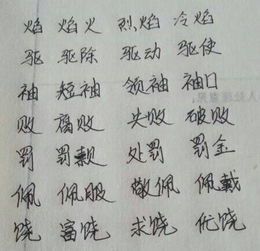 焰 焰火 烈焰 冷焰
驱 驱除 驱动 驱使
袖 短袖 领袖 袖口
败 腐败 失败 破败
罚 罚款 处罚 罚金
佩 佩服 敬佩 佩戴
饶 富饶 求饶 饶